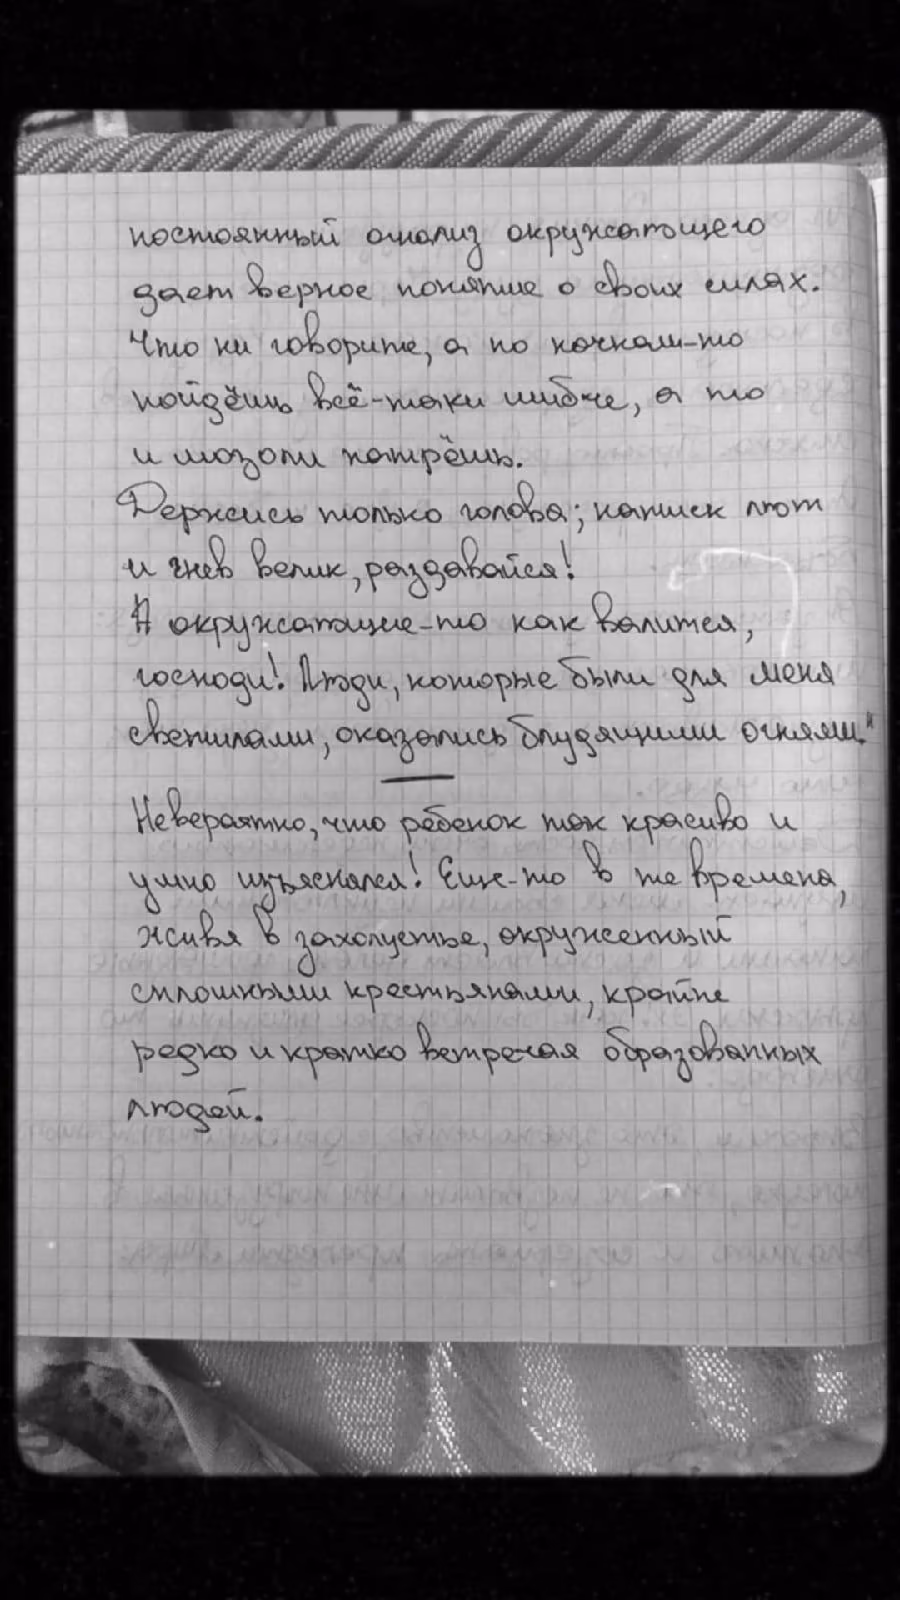 постоянный анализ окружающего
дает верное понятие о своих силах.
Что ни говорите, а по кочкам-то
пойдёшь всё-таки шибче, а то
и мозоли натрёшь.
Держись только голова; натиск лют
и гнев велик, раздавайся!
А окружающие-то как валится,
господи! Люди, которые были для меня
светилами, оказались блудящими огнями."
Невероятно, что ребёнок так красиво и
умно изъяснялся! Еще-то в те времена,
живя в захолустье, окруженный
сплошными крестьянами, крайне
редко и кратко встречая образованных
людей.